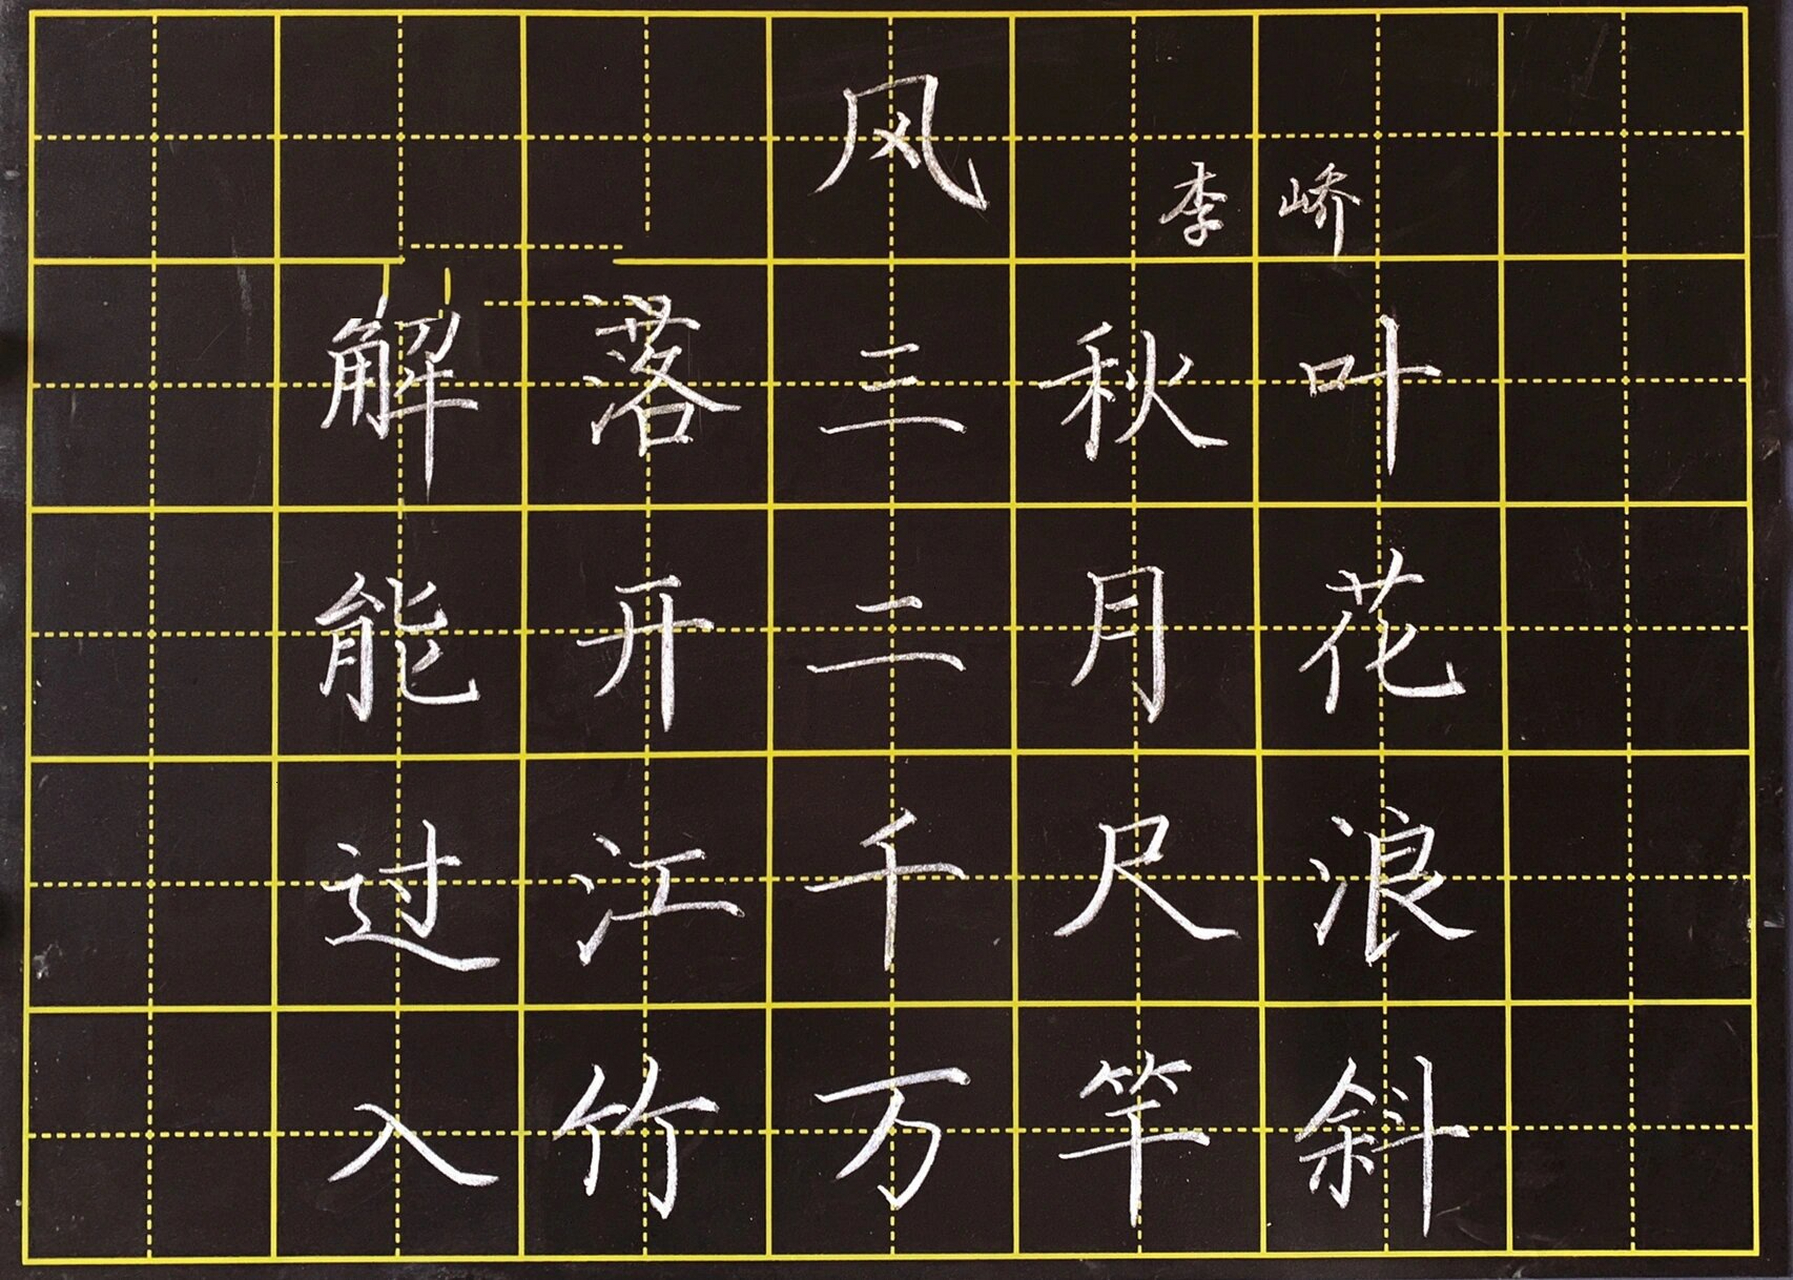 风
李峤
解落三秋叶
能开二月花
过江千尺浪
入竹万竿斜